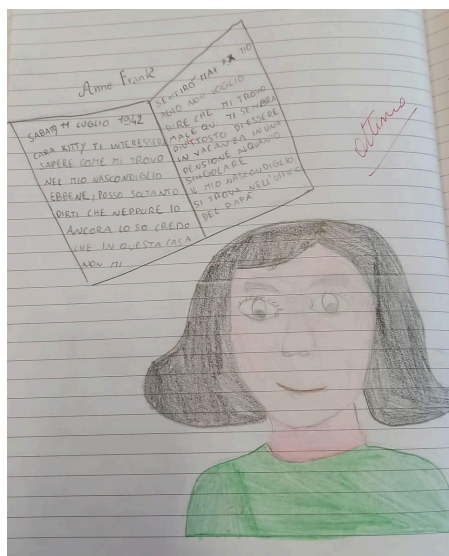 Anne Frank
SABATO 11 LUGLIO 1942
CARA KITTY TI INTERESSERÀ
SAPERE COME MI TROVO
NEL MIO NASCONDIGLIO
EBBENE, POSSO SOLTANTO
DIRTI CHE NEPPURE IO
ANCORA LO SO CREDO
CHE IN QUESTA CASA
NON MI
SENTIRÒ MAI A MIO
AGIO NON VOGLIO
DIRE CHE MI TROVO
MALE QUI. TI SEMBRA
PIUTTOSTO DI ESSERE
IN VACANZA IN UNA
PENSIONE ALQUANTO
SINGOLARE
IL MIO NASCONDIGLIO
SI TROVA NELL'UFFICIO
DEL PAPÀ
ottimo